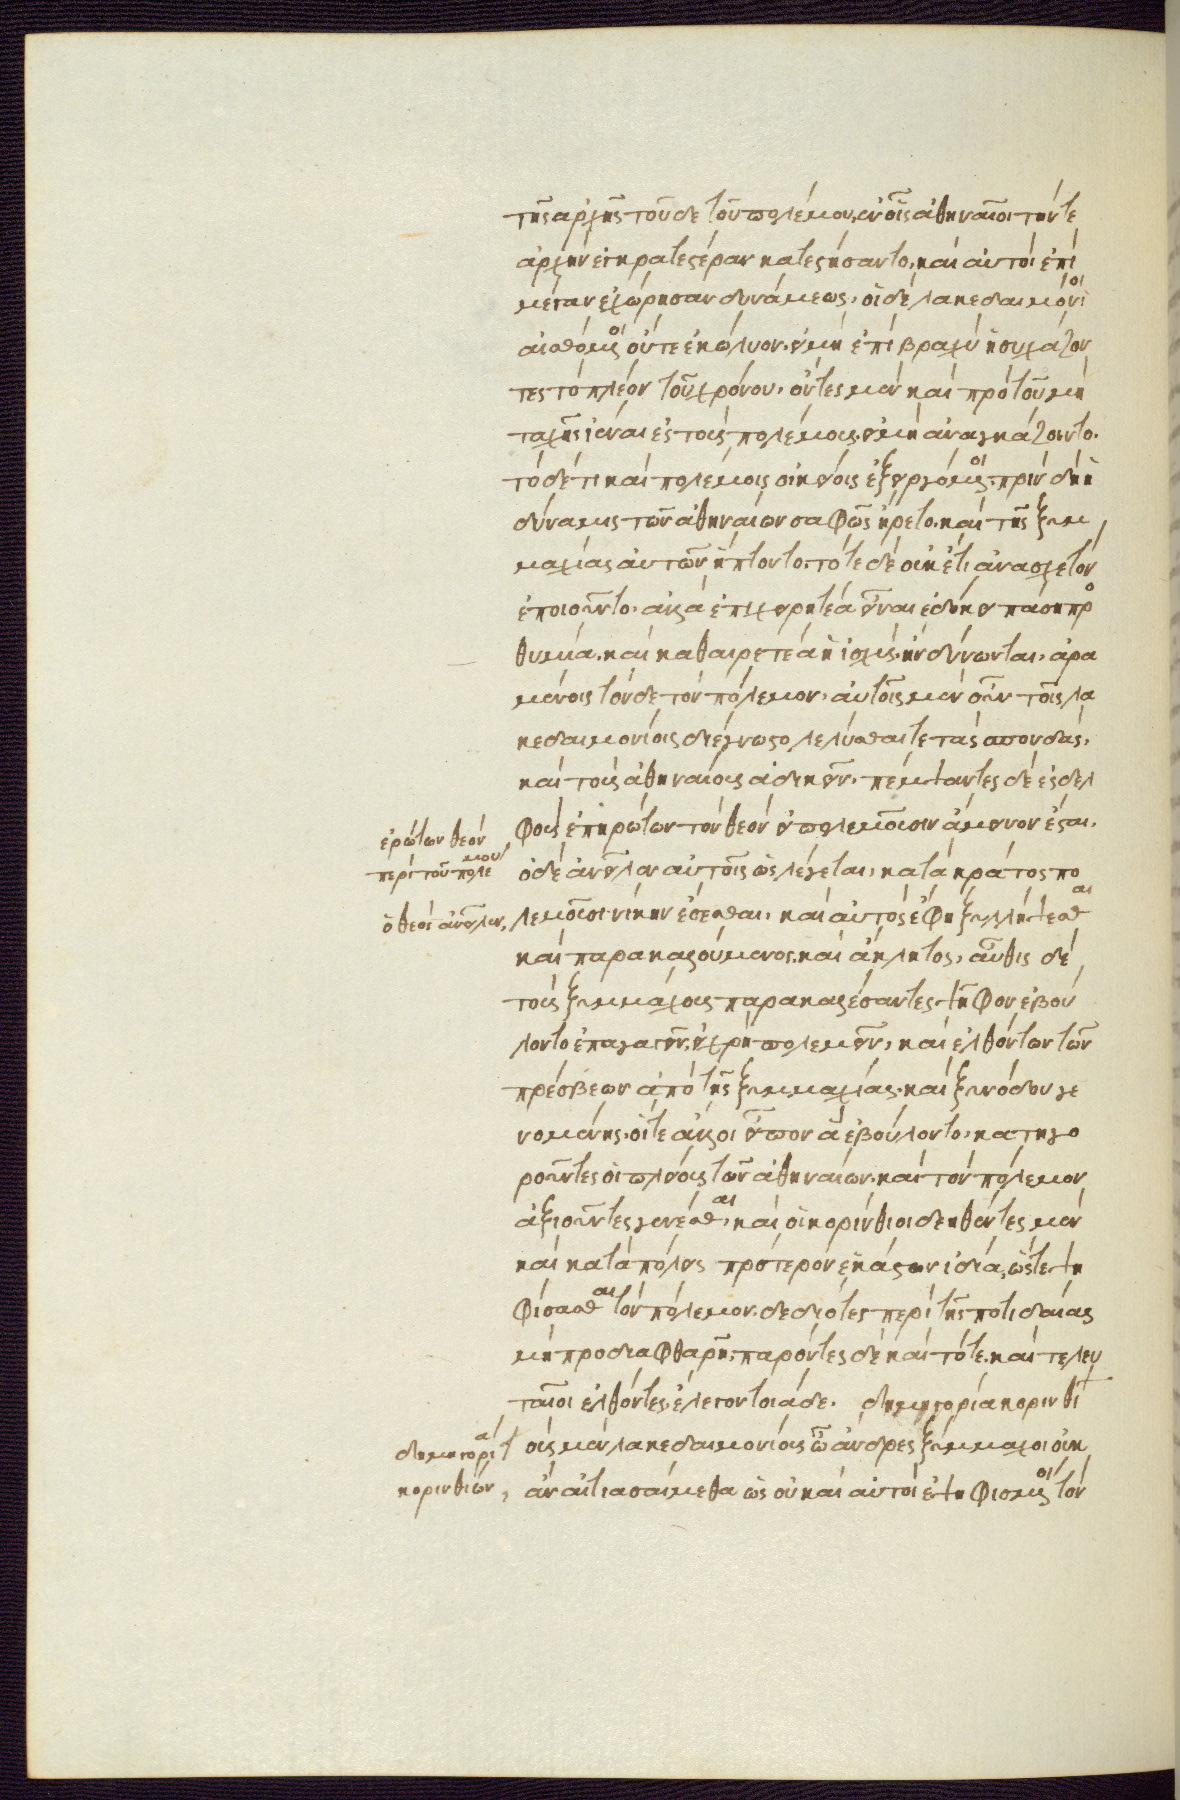 τῆς ἀρχῆς τοῦδε τοῦ πολέμου, ἐν οἷς ἀθηναῖοι τήν τε
ἀρχὴν ἐγκρατεστέραν κατεστήσαντο, καὶ αὐτοὶ ἐπὶ
μέγα ἐχώρησαν δυνάμεως, οἱ δὲ λακεδαιμόνιοι
αἰσθόμενοι οὔτε ἐκώλυον, εἰ μὴ ἐπὶ βραχὺ ἡσυχάζον
τες τὸ πλέον τοῦ χρόνου, ὄντες μὲν καὶ πρὸ τοῦ μὴ
ταχεῖς ἰέναι ἐς τοὺς πολέμους, εἰ μὴ ἀναγκάζοιντο.
τὸ δέ τι καὶ πολέμοις οἰκείοις ἐξειργόμενοι, πρὶν δὴ ἡ
δύναμις τῶν ἀθηναίων σαφῶς ᾔρετο, καὶ τῆς ξυμ
μαχίας αὐτῶν ἥπτοντο, τότε δὲ οὐκέτι ἀνασχετὸν
ἐποιοῦντο, ἀλλὰ ἐπιχειρητέα εἶναι ἐδόκει πάσῃ προ
θυμίᾳ, καὶ καθαιρετέα ἡ ἰσχὺς, ἢν δύνωνται, ἀρα
μένοις τόνδε τὸν πόλεμον, αὐτοῖς μὲν οὖν τοῖς λα
κεδαιμονίοις διέγνωστο λελύσθαι τε τὰς σπονδὰς,
καὶ τοὺς ἀθηναίους ἀδικεῖν, πέμψαντες δὲ ἐς δελ
φοὺς ἐπηρώτων τὸν θεὸν εἰ πολεμοῦσιν ἄμεινον ἔσται.
ὁ δὲ ἀνεῖλεν αὐτοῖς ὡς λέγεται, κατὰ κράτος πο
λεμοῦσι νίκην ἔσεσθαι, καὶ αὐτὸς ἔφη ξυλλήψεσθαι
καὶ παρακαλούμενος, καὶ ἄκλητος, αὖθις δὲ
τοὺς ξυμμάχους παρακαλέσαντες ψῆφον ἐβού
λοντο ἐπαγαγεῖν, εἰ χρὴ πολεμεῖν, καὶ ἐλθόντων τῶν
πρέσβεων ἀπὸ τῆς ξυμμαχίας, καὶ ξυνόδου γε
νομένης, οἵ τε ἄλλοι εἶπον ἃ ἐβούλοντο, κατηγο
ροῦντες οἱ πλείους τῶν ἀθηναίων, καὶ τὸν πόλεμον
ἀξιοῦντες γενέσθαι, καὶ οἱ κορίνθιοι δεηθέντες μὲν
καὶ κατὰ πόλεις πρότερον ἑκάστων ἰδίᾳ, ὥστε ψη
φίσασθαι τὸν πόλεμον, δεδιότες περὶ τῆς ποτιδαίας
μὴ προδιαφθαρῇ, παρόντες δὲ καὶ τότε, καὶ τελευ
ταῖοι ἐλθόντες, ἔλεγον τοιάδε. δημηγορία κορινθί
οὺς μὲν λακεδαιμονίους ὦ ἄνδρες ξύμμαχοι οὐκ
ἂν αἰτιασαίμεθα ὡς οὐ καὶ αὐτοὶ ἐψηφισμένοι τὸν
ἐρώτων θεὸν
περὶ τοῦ πολέμου
ὁ θεὸς ἀνεῖλεν,
δημηγορία
κορινθίων,